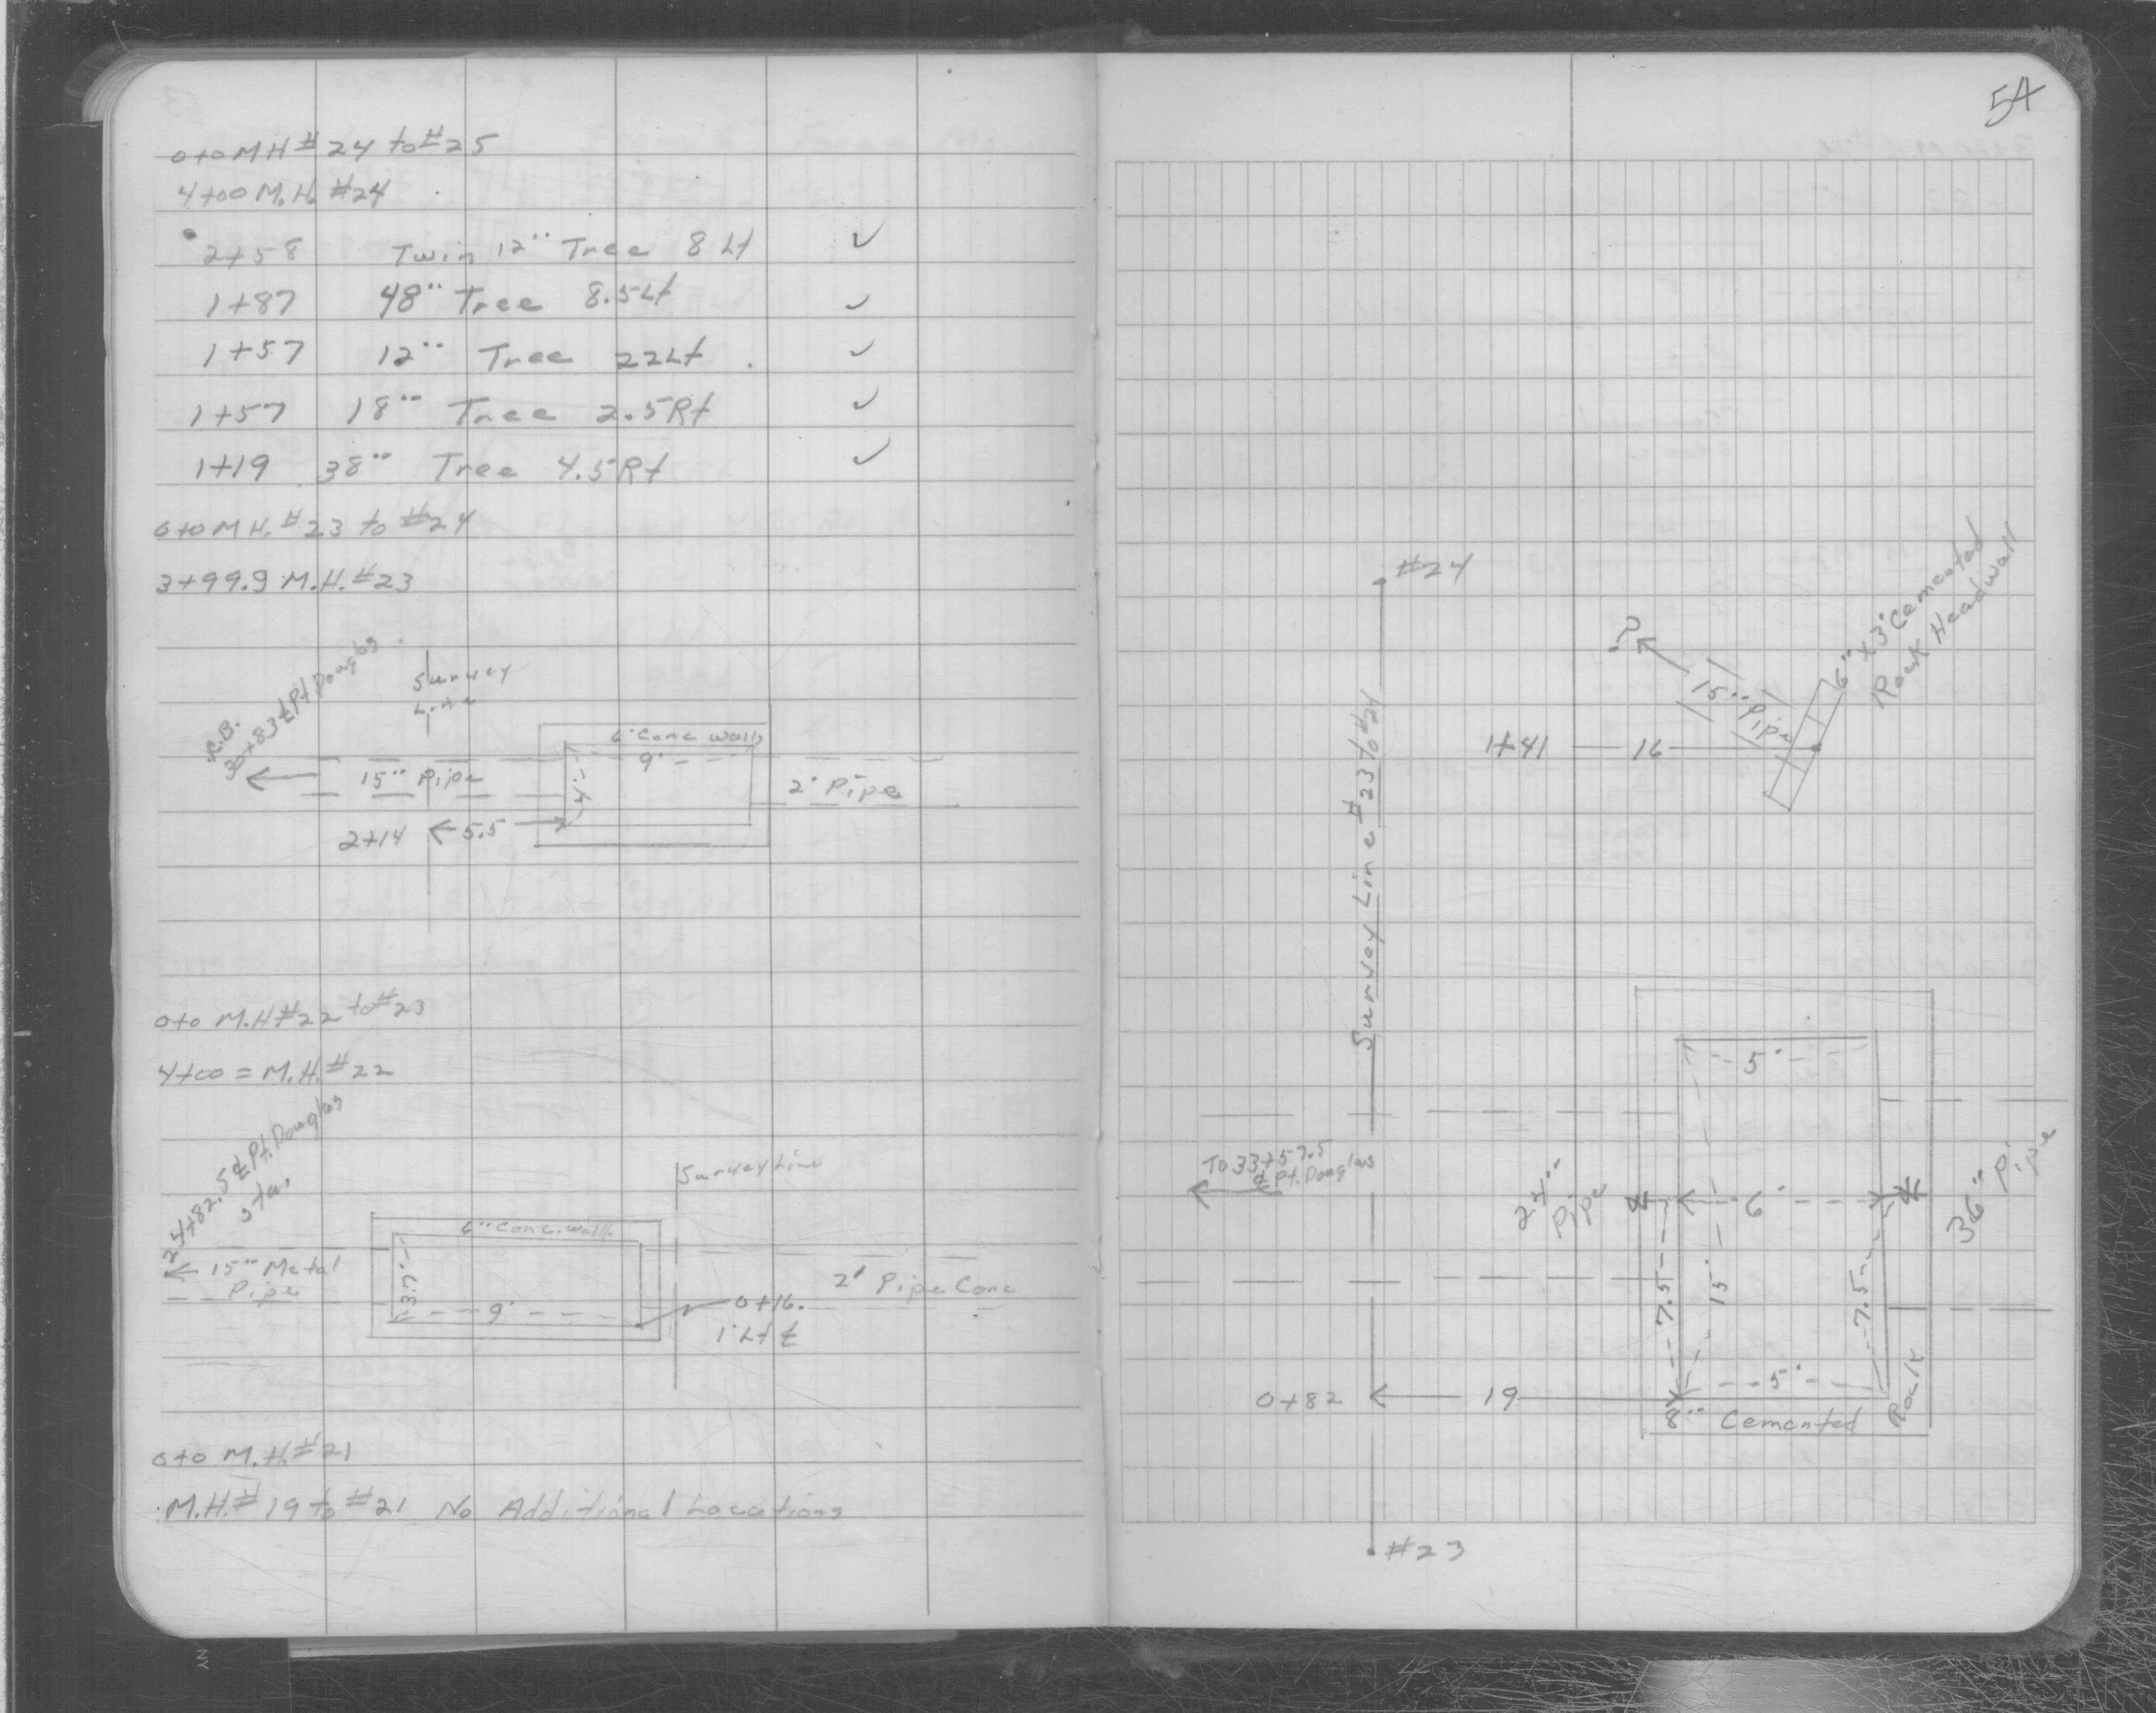 0+0 M H # 24 to # 25
4+00 M.H. #24
2+58 Twin 12" Tree 8 Lt ✓
1+87 48" Tree 8.5 Lt ✓
1+57 12" Tree 22 Lt . ✓
1+57 18" Tree 2.5 Rt ✓
1+19 38" Tree 4.5 Rt ✓
0+0 M H. # 23 to # 24
3+99.9 M.H. # 23
Survey
Line
℄ Pt Douglas
6" Conc Walls
9'
15" Pipe
4'
2' Pipe
2+14
5.5
0+0 M.H # 22 to # 23
4+00 = M.H. # 22
24+82.5 ℄ Pt. Douglas
Sta.
Survey Line
6" Conc. Walls
15" Metal
Pipe
3.7'
9'
2' Pipe Conc
0+16.
1' Lt ℄
0+0 M.H. # 21
M.H. # 19 to # 21 No Additional Locations
54
#24
?
6" x 3' Cemented
Rock Headwall
15" Pipe
1+41
16
Survey Line # 23 to # 24
5'
To 33+57.5
℄ Pt. Douglas
24"
Pipe
6'
36" Pipe
7.5
15'
7.5
5'
0+82
19
8" Cemented
Rock
#23